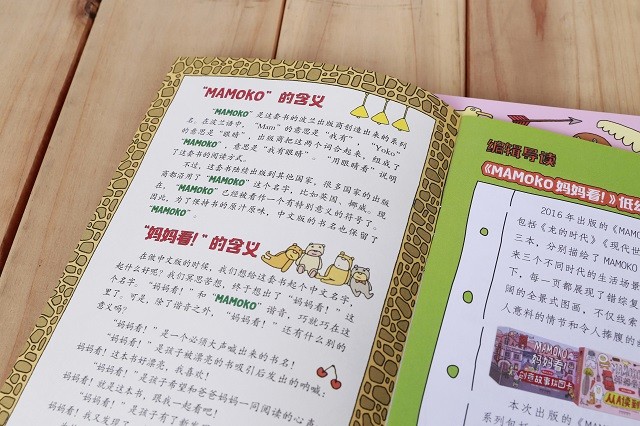 "MAMOKO" 的含义
"MAMOKO" 是这套书的波兰出版商创造出来的系列
名。在波兰语中，"Mam" 的意思是 "我有"，"Yoko"
的意思是 "眼睛"，出版商把这两个词合起来，组成了
"MAMOKO"，意思是 "我有眼睛"。"用眼睛看" 说明
了这套书的阅读方式。
不过，这套书陆续出版到其他国家，很多国家的出版
商都沿用了 "MAMOKO" 这个名字，比如英国、挪威。现
在，"MAMOKO" 已经被看作一个有特别意义的符号了。
因此，为了保持书的原汁原味，中文版的书名也保留了
"MAMOKO"。
"妈妈看！" 的含义
在做中文版的时候，我们想给这套书起个中文名字，
起什么好呢？我们冥思苦想，终于想出了 "妈妈看！" 这
个名字。"妈妈看！" 和 "MAMOKO" 谐音，巧就巧在这
里了。可是，除了谐音之外，"妈妈看！" 还有什么别的
意义吗？
"妈妈看！" 是一个必须大声喊出来的书名！
"妈妈看！" 是孩子被漂亮的书吸引后发出的呐喊：
妈妈看！这本书好漂亮，我喜欢！
"妈妈看！" 是孩子希望和爸爸妈妈一同阅读的心声
妈妈看！就是这本书，跟我一起看吧！
"妈妈看！" 是孩子有了新发现
妈妈看！我又发现了
编辑导读
《MAMOKO 妈妈看！》低幼
2016 年出版的《MAMO
包括《龙的时代》《现代世
三本，分别描绘了 MAMOK
来三个不同时代的生活场景
下，每一页都展现了错综复
阔的全景式图画，不仅线索
人意料的情节和令人捧腹的
MAMOKO
妈妈看！
创意故事拼图卡
从A读到
本次出版的《MAMO
系列包括